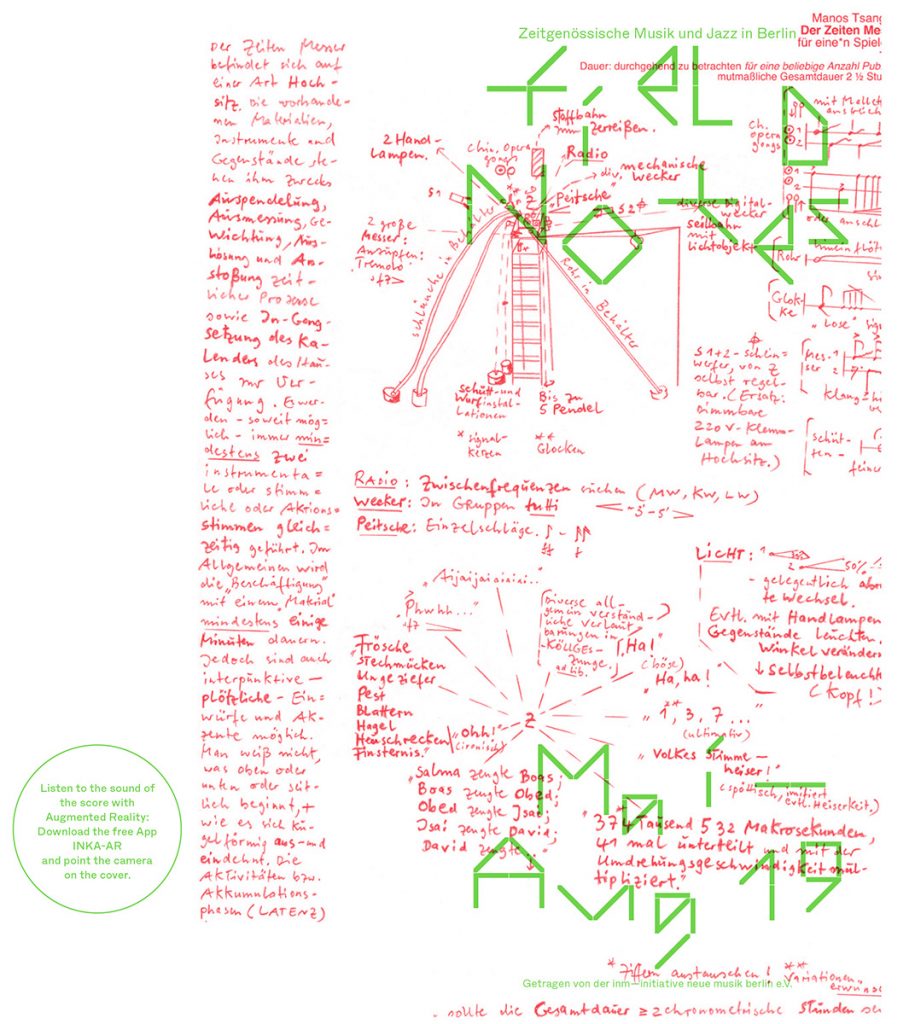 Zeitgenössische Musik und Jazz in Berlin
Manos Tsang
Der Zeiten Me
für eine*n Spiel
Dauer: durchgehend zu betrachten für eine beliebige Anzahl Pub
mutmaßliche Gesamtdauer 2 ½ Stu
FiELD
NOTES
Mai–
Aug 19
Der Zeiten Messer
befindet sich auf
einer Art Hoch-
sitz. Die vorhande-
nen Materialien,
Instrumente und
Gegenstände ste-
hen ihm zwecks
Auspendelung,
Ausmessung, Ge-
wichtung, Aus-
lösung und An-
stoßung zeit-
licher Prozesse
sowie In-Gang-
setzung des Ka-
lenders des Hau-
ses zur Ver-
fügung. Es wer-
den - soweit mög-
lich - immer min=
destens zwei
instrumenta=
le oder stimm=
liche oder Aktions=
stimmen gleich=
zeitig geführt. Im
Allgemeinen wird
die „Beschäftigung"
mit einem „Material"
mindestens einige
Minuten dauern.
Jedoch sind auch
interpunktive —
plötzliche - Ein=
würfe und Ak-
zente möglich.
Man weiß nicht,
was oben oder
unten oder seit-
lich beginnt, +
wie es sich ku-
gelförmig aus-und
eindehnt. Die
Aktivitäten bzw.
Akkumulations-
phasen (LATENZ)
2 Hand-
lampen.
chin. opera
gongs
Stoffbahn
zerreißen.
Radio
div. mechanische
wecker
"Peitsche"
S1
S2
diverse Digital-
wecker
Seilbahn
mit
Lichtobjekt
2 große
Messer:
Anzupfen:
Tremolo
schläuche in Behälter
Rohr in Behälter
schütt-und
Wurfinstal-
lationen
Bis zu
5 Pendel
* signal-
kerzen
** Glocken
mit Mallet
ch.
opera
gongs
oder
anschl
Rohr
hineinflöt
Glok-
ke
"Lose"
Mes-
ser
1
2
Klang
schüt-
ten -
feine
S1+2 - schein=
werfer, von Z
selbst regel-
bar. (Ersatz:
Dimmbare
220 V-Klemm-
Lampen am
Hochsitz.)
Radio: Zwischenfrequenzen suchen (MW, KW, LW)
Wecker: In Gruppen tutti <~3'-5'>
Peitsche: Einzelschläge.
Licht:
50%
- gelegentlich
te Wechsel.
Evtl. mit Handlampen
Gegenstände leuchten,
Winkel verändern
↓ Selbstbeleucht
(Kopf!)
"Aijaijaiaiaiai.."
"Phwhh..."
(Diverse all-
gemein verständ-
liche Verlaut-
barungen in
KÖLLGES-
Zunge.)
ad lib.
"Ha!
(böse)
"Ha, ha!"
"Frösche
Stechmücken
Ungeziefer
Pest
Blattern
Hagel
Heuschrecken
Finsternis."
"Ohh!"
(ironisch)
Z
"1, 3, 7..."
(ultimativ)
"Volkes Stimme —
heiser!"
(spöttisch, imitiert
evtl. Heiserkeit,)
"Salma zeugte Boas;
Boas zeugte Obed;
Obed zeugte Isai;
Isai zeugte David;
David zeugte..."
"374 Tausend 532 Makrosekunden,
41 mal unterteilt und mit der
Umdrehungsgeschwindigkeit mul-
tipliziert."
Listen to the sound of
the score with
Augmented Reality:
Download the free App
INKA-AR
and point the camera
on the cover.
* Ziffern austauschen!
** Variationen
erwünsc
Getragen von der inm—initiative neue musik berlin e.V.
sollte die Gesamtdauer ≥ 2 chronometrische Stunden